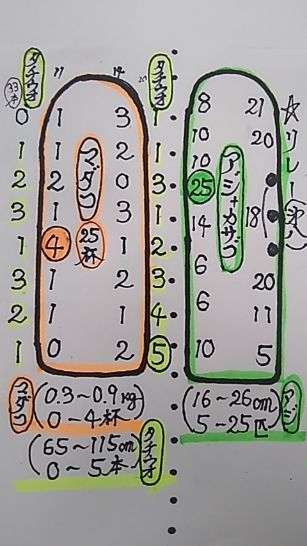 タチウオ 33本 11 14 20 タチウオ
0 1 3 1 8 21 ☆リレー
1 1 2 1 10 20
2 2 0 3 10
3 1 3 1 25
1 4 1 2 14 18
3 1 2 3 6 20
2 1 1 4 6 11
1 0 2 5 10 5
マダコ 25杯
アジ+カサゴ
マダコ (0.3~0.9kg
0~4杯)
(65~115cm
0~5本) タチウオ
(16~26cm
5~25匹) アジ